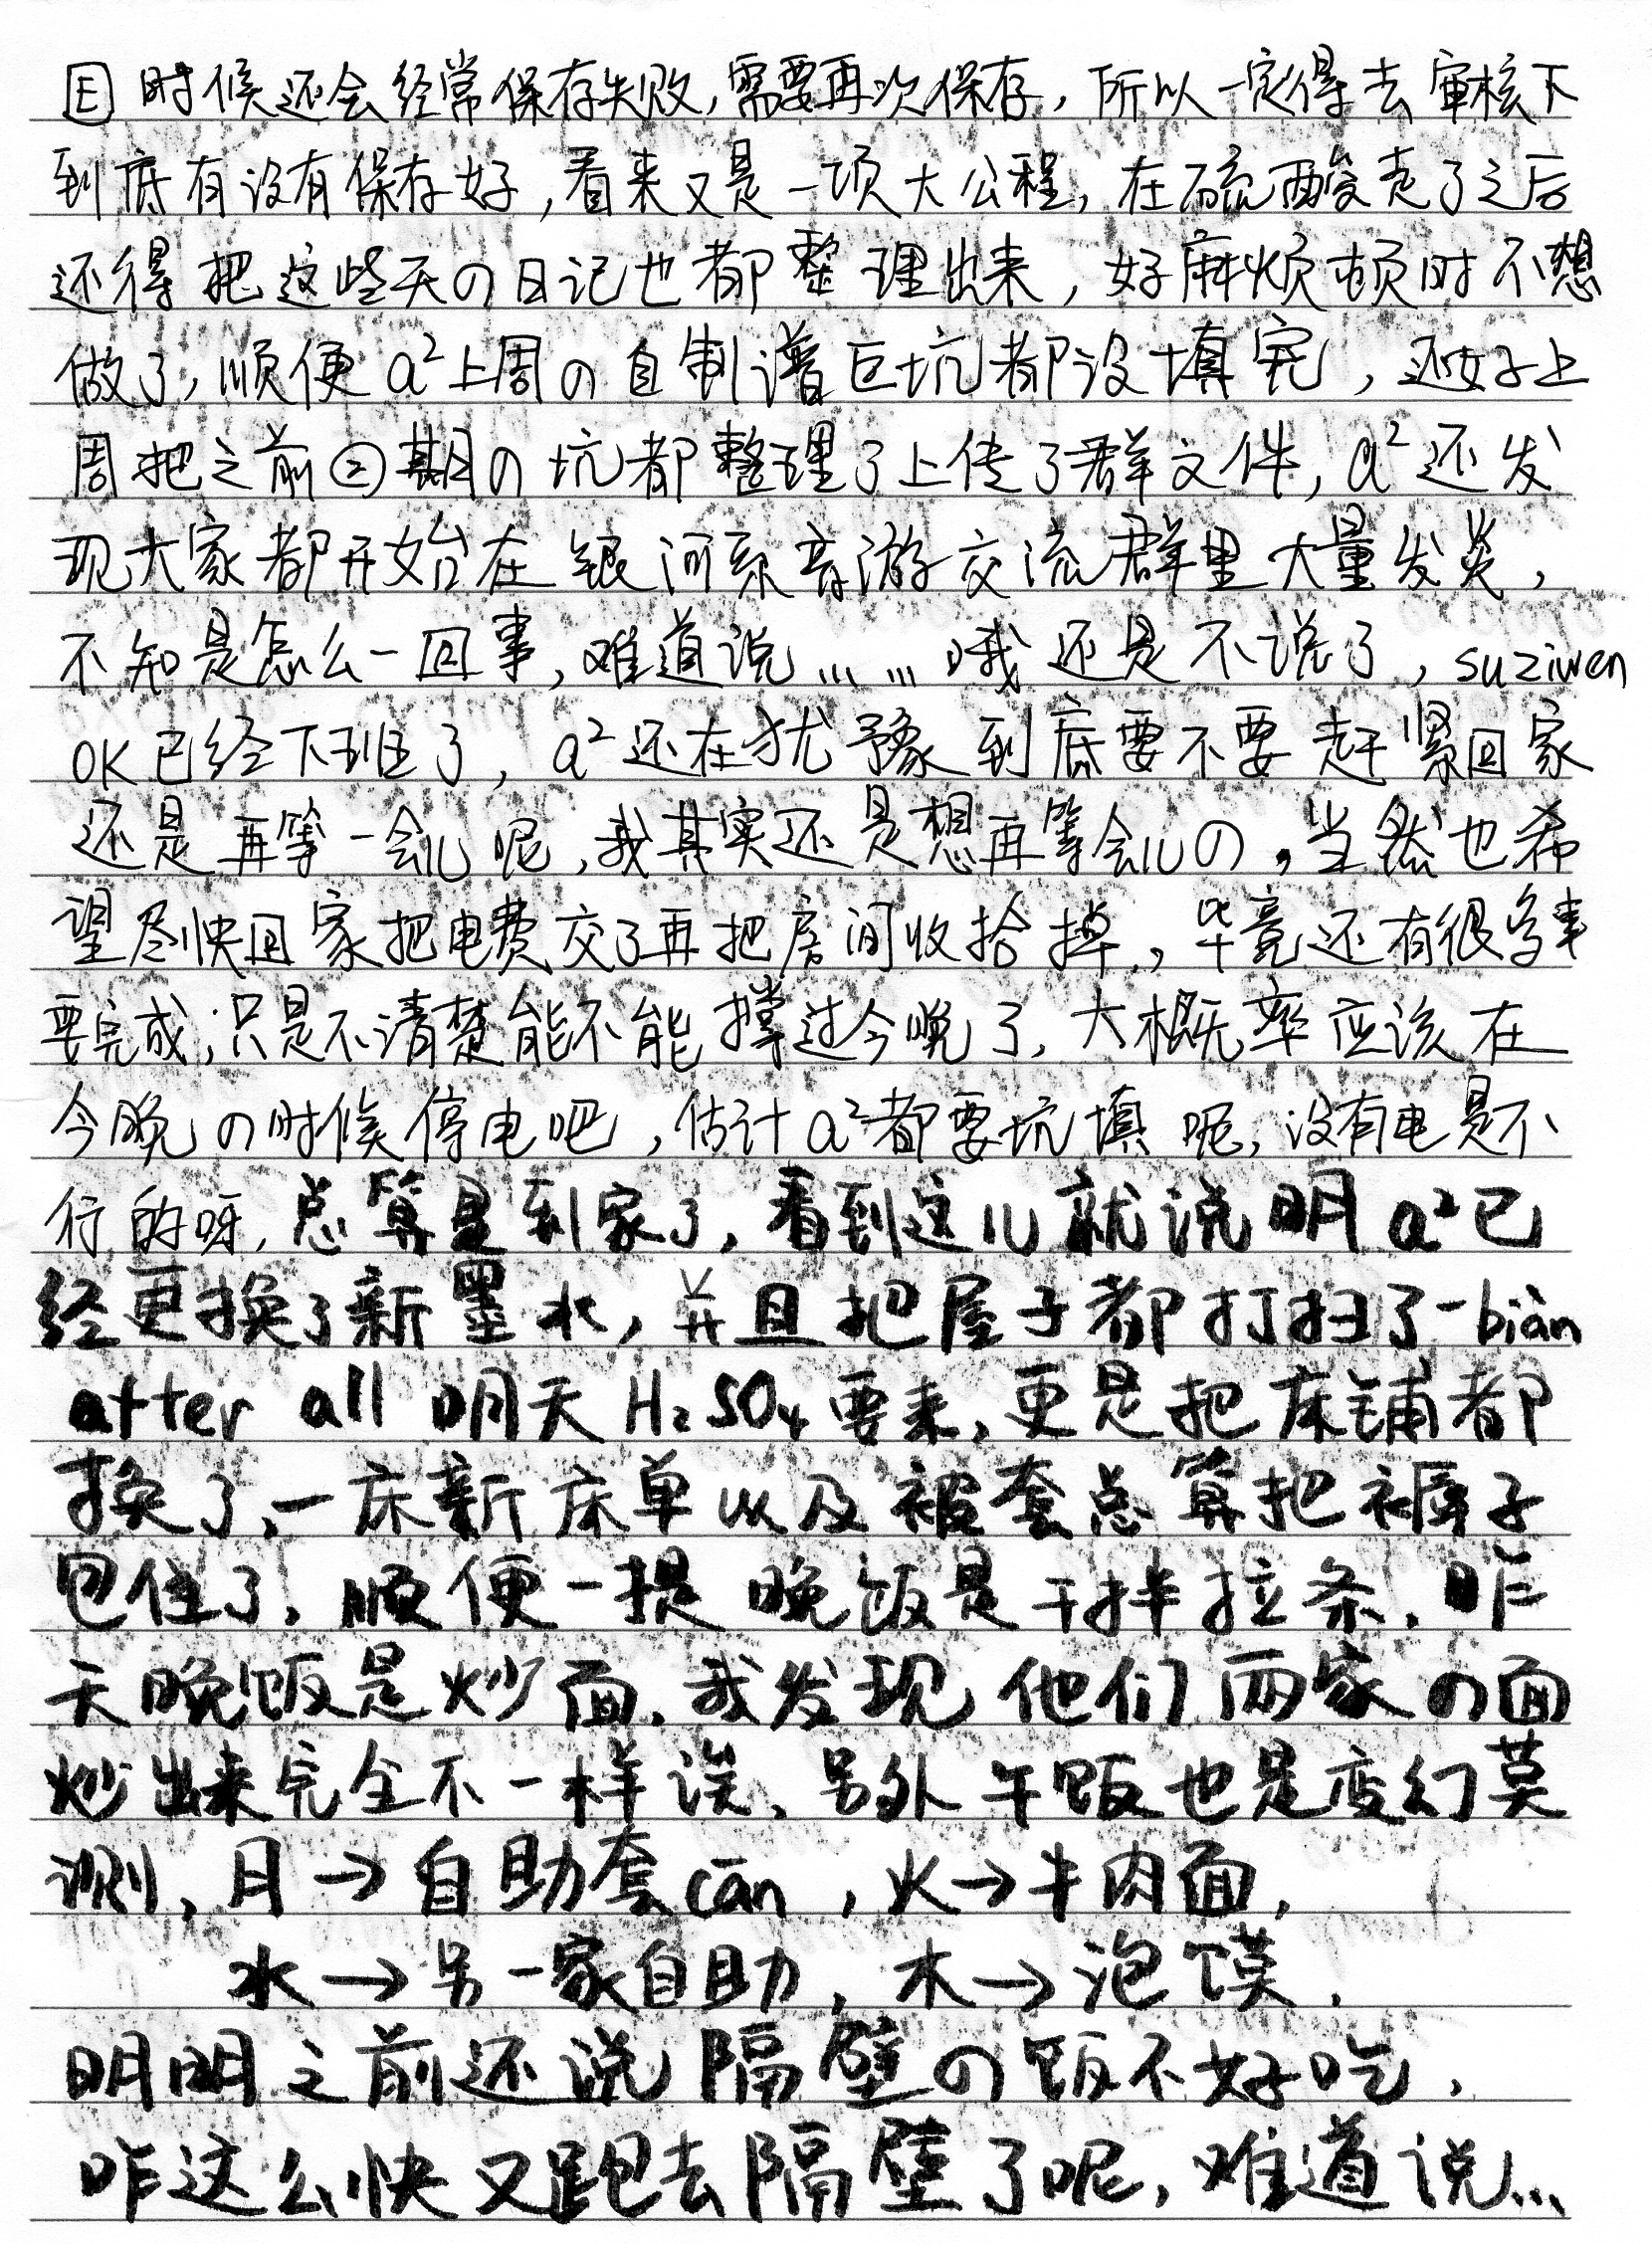 E 时候还会经常保存失败,需要再次保存,所以一定得去审核下
到底有没有保存好,看来又是一项大公程,在硫酸走了之后
还得把这些天の日记也都整理出来,好麻烦顿时不想
做了,顺便a²上周の自制谱巨坑都没填完,还好上
周把之前②期の坑都整理了上传了群文件,a²还发
现大家都开始在银河系音游交流群里大量发炎,
不知是怎么一回事,难道说……哦还是不说了,suziwen
OK已经下班了,a²还在犹予豫到底要不要赶紧回家
还是再等一会儿呢,我其实还是想再等会儿の,当然也希
望尽快回家把电费交了再把房间收拾掉,毕竟还有很多事
要完成,只是不清楚能不能撑过今晚了,大概率应该在
今晚の时候停电吧,估计a²都要坑填呢,没有电是不
行的呀,总算是到家了,看到这儿就说明a²已
经更换了新墨水,并且把屋子都打扫了一biàn
after all 明天H₂SO₄要来,更是把床铺都
换了,一床新床单以及被套总算把褥子
包住了,顺便一提晚饭是干拌拉条,昨
天晚饭是炒面,我发现他们两家の面
炒出来完全不一样诶、另外午饭也是变幻莫
测,月→自助套cān,火→牛肉面,
水→另一家自助,木→泡馍,
明明之前还说隔壁の饭不好吃,
咋这么快又跑去隔壁了呢,难道说…